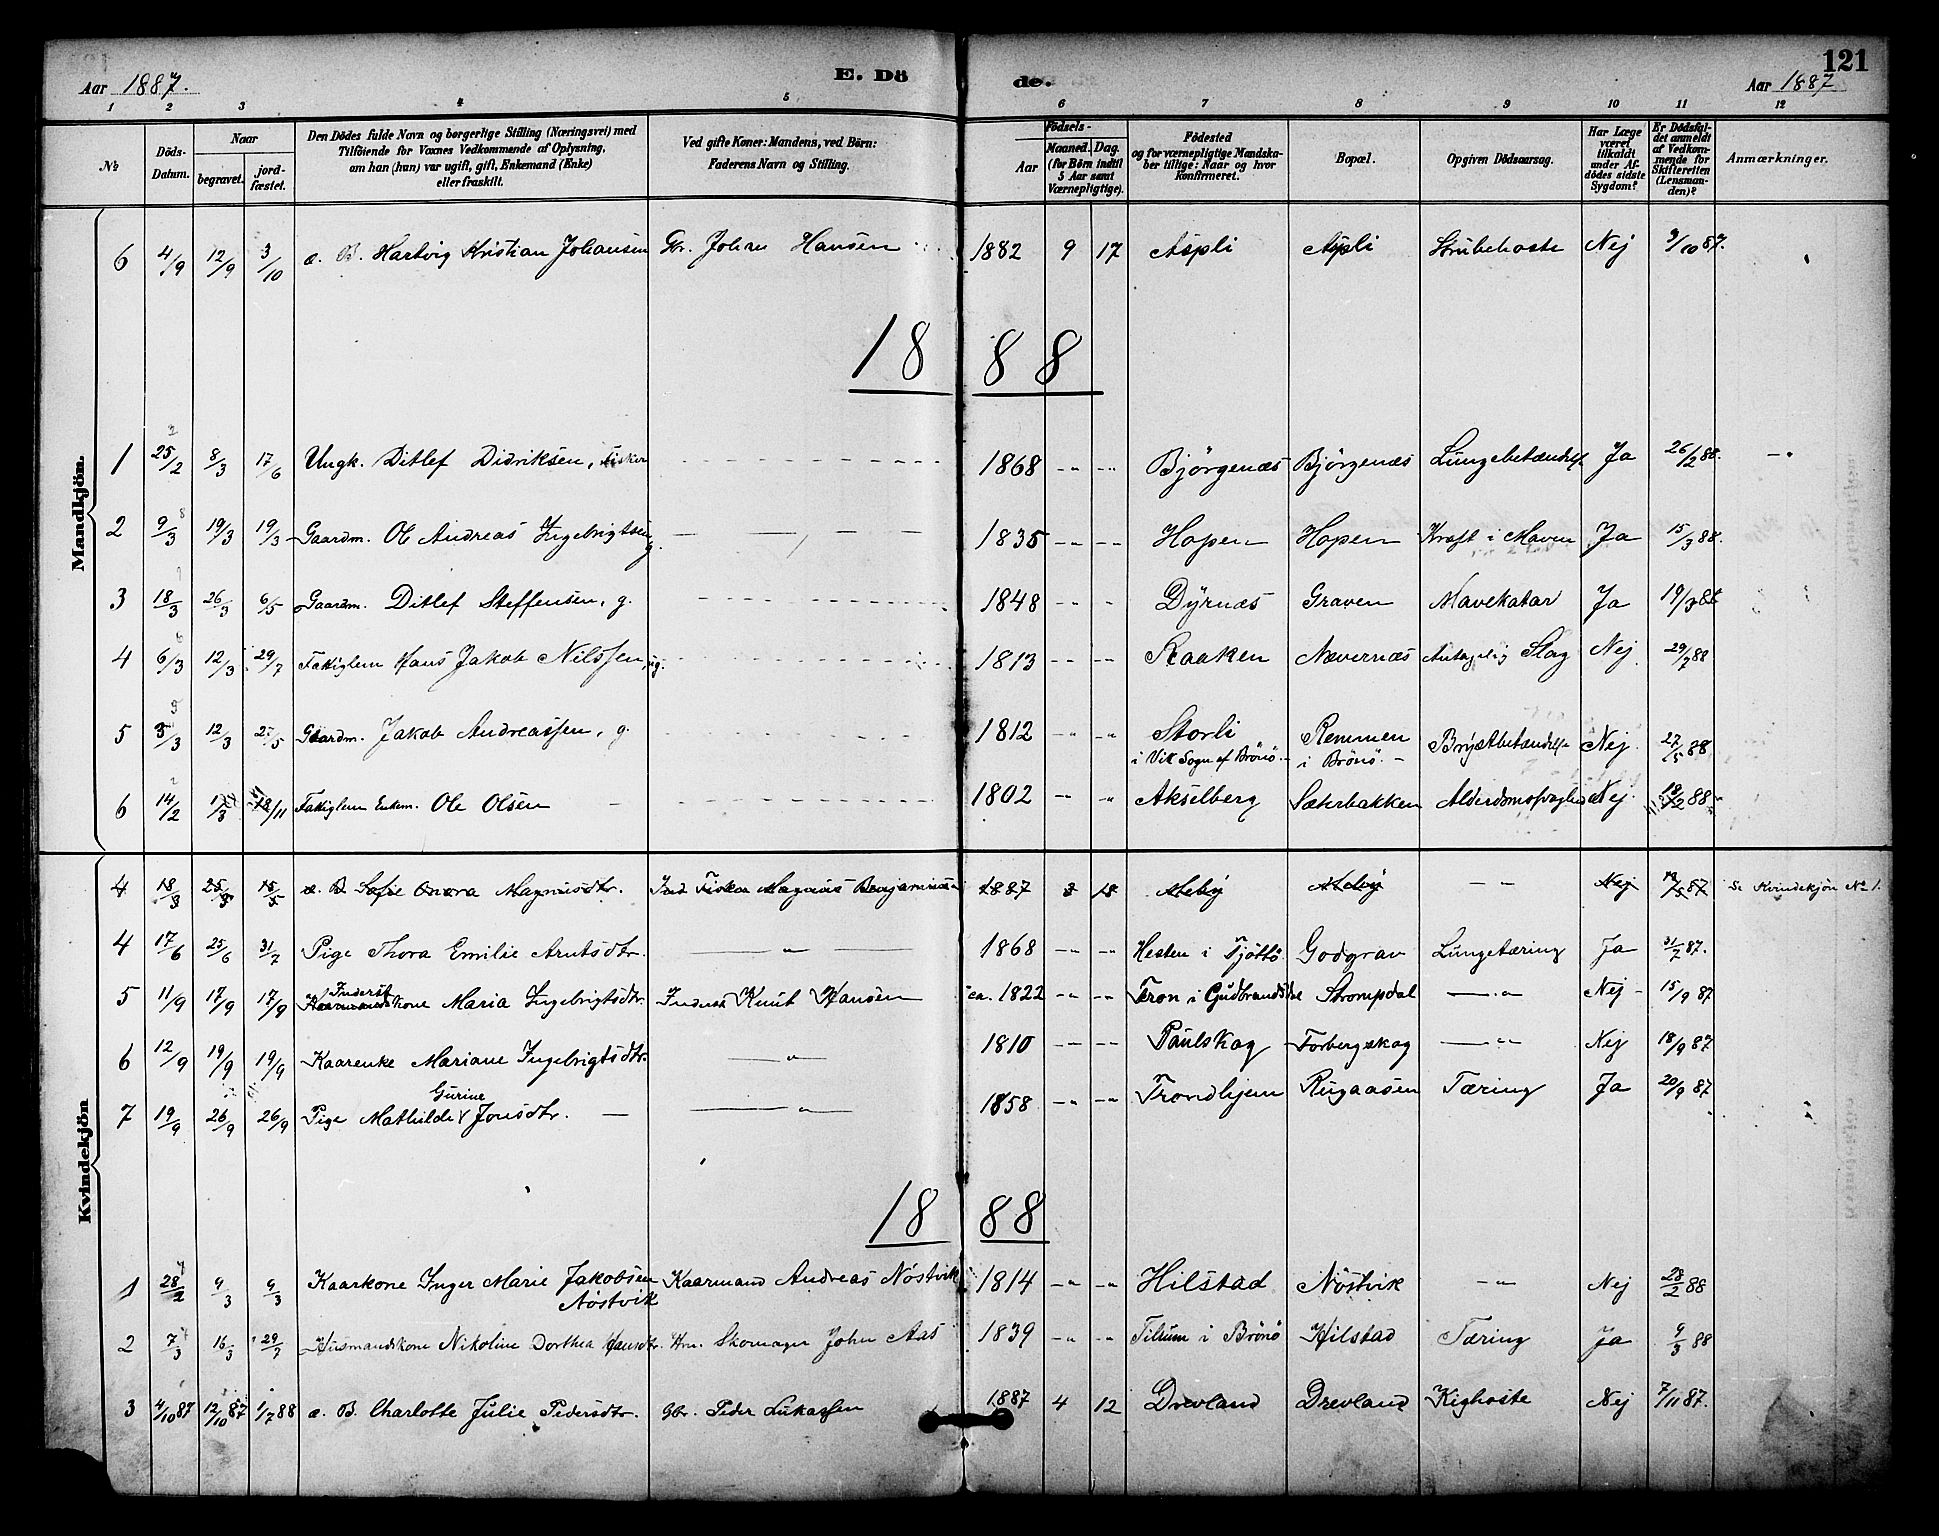 Aar 1887.
E. Dö
de.
121
Aar 1887
1 2 3 4 5 6 7 8 9 10 11 12
№
Döds-Datum.
Naar
begravet.
jordfæstet.
Den Dödes fulde Navn og borgerlige Stilling (Næringsvei) med Tilföiende for Voxnes Vedkommende af Oplysning, om han (han) var ugift, gift, Enkemand (Enke) eller fraskilt.
Ved gifte Koner: Mandens, ved Börn: Faderens Navn og Stilling.
Födsels-
Aar
Maaned. Dag.
(for Börn indtil 5 Aar samt Værnepligtige).
Födested og for værnepligtige Mandskaber tillige: Naar og hvor Konfirmeret.
Bopæl.
Opgiven Dödsaarsag.
Har Læge været tilkaldt under Afdödes sidste Sygdom?
Er Dödsfaldet anmeldt af Vedkommende for Skifteretten (Lensmanden)?
Anmærkninger.
Mandkjön.
6 4/9 12/9 3/10 æ. B. Hartvig Kristian Johansen Gbr. Johan Hansen 1882 9 17 Aspli Aspli Strubehoste Nej 3/10 87.
18 88
1 25/2 8/3 17/6 Ungk. Ditlef Didriksen, fisker 1868 -"- -"- Björgenæs Björgenæs Lungebetændelse Ja 26/2 88.
2 9/3 19/3 19/3 Gaardm. Ole Andreas Ingebrigtsen g. 1835 -"- -"- Hopen Hopen Kræft i Maven Ja 15/3 88.
3 18/3 26/3 6/5 Gaardm. Ditlef Steffensen, g. 1848 -"- -"- Dyrnæs Graven Mavekatar Ja 19/3 88
4 6/3 12/3 29/7 Fattiglem Hans Jakob Nilssen, ug. 1813 -"- -"- Raaken Nævernæs Antagelig Slag Nej 29/7 88
5 5/3 12/3 27/5 Gaardm. Jakob Andreassen, g. 1812 -"- -"- Storli i Vik Sogn af Brönö Remmen i Brönö Brystbetændelse Nej 27/5 88
6 14/2 1/3 18/11 Fattiglem Enkem. Ole Olsen 1802 -"- -"- Akselberg Sæterbakken Alderdomssvaghed Nej 88
Kvindekjön
4 18/3 25/3 15/5 æ. B. Sofie Magnusdtr. Ind Fisker Magnus Benjaminsen 1887 3 18 -"- Nej 87 Se Kvindekjön № 1.
4 17/6 25/6 31/7 Pige Thora Emilie Arntsdtr. -"- 1868 -"- -"- Hesten i Tjöttö Godgrav Lungetæring Ja 31/7 87.
5 11/9 17/9 17/9 Inderstkone Maria Ingebrigtsdtr. Inderst Knut Hansen ca. 1822 -"- -"- Fron i Gudbrandsdal Strompdal -"- Nej 15/9 87
6 12/9 19/9 19/9 Kaarenke Mariane Ingebrigtsdtr. -"- 1810 -"- -"- Paulskog Forbergskog -"- Nej 18/9 87
7 19/9 26/9 26/9 Pige Mathilde Gurine Jonsdtr. -"- 1858 -"- -"- Trondhjem Rugaasen Tæring Ja 20/9 87
18 88
1 28/2 9/3 9/3 Kaarkone Inger Marie Jakobsen Nöstvik Kaarmand Andreas Nöstvik 1814 -"- -"- Hilstad Nöstvik -"- Nej 28/2 88
2 7/3 16/3 29/7 Husmandskone Nikoline Dorthea Hansdtr. Hm. Skomager John Aas 1839 -"- -"- Tilrum i Brönö Hilstad Tæring Ja 9/3 88
3 4/10 87 12/10 87 1/7 88 æ. B. Charlotte Julie Pedersdtr. Gbr. Peder Lukassen 1887 4 12 Drevland Drevland Kighoste Nej 7/11 87.